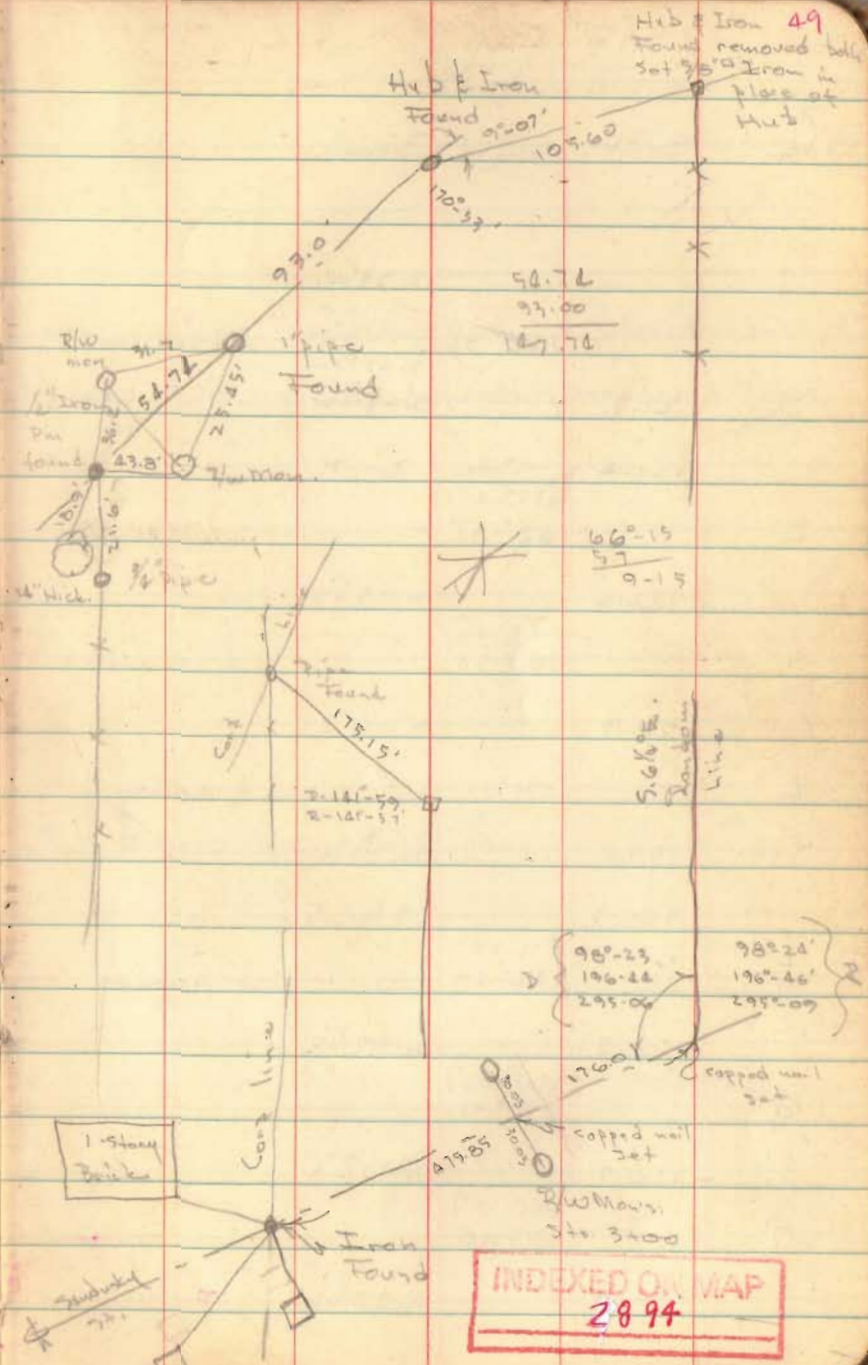 49
Hub & Iron
Found removed both
Set 5/8" Iron in
place of
Hub
Hub & Iron
Found
9°-07'
105.60
170°-53'
93.0'
54.74
93.00
147.74
R/W
mon
31.7
54.74
1" pipe
Found
25.45'
1/2" Iron
Pin
found
36.2
43.8'
R/W Mon.
18.9'
21.6'
14" Hick.
3/4" Pipe
66°-15
57
9-15
Line
Corp
Pipe
Found
175.15'
D-141°-59'
R-141°-57'
S.6¼°E.
Random
Line
D
98°-23
196-44
295-06
98°24'
196°-46'
295°-09
R
176.0
capped nail
set
Corp line
30.05
30.05
capped nail
set
479.85
R/W Mon's.
Sta. 3+00
1-Story
Brick
Iron
Found
Sandusky
St.
INDEXED ON MAP
2894